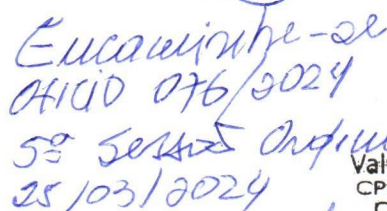 Encaminhe-se
Ofício 076/2024
5ª Sessão Ordin
Val
25/03/2024
CP